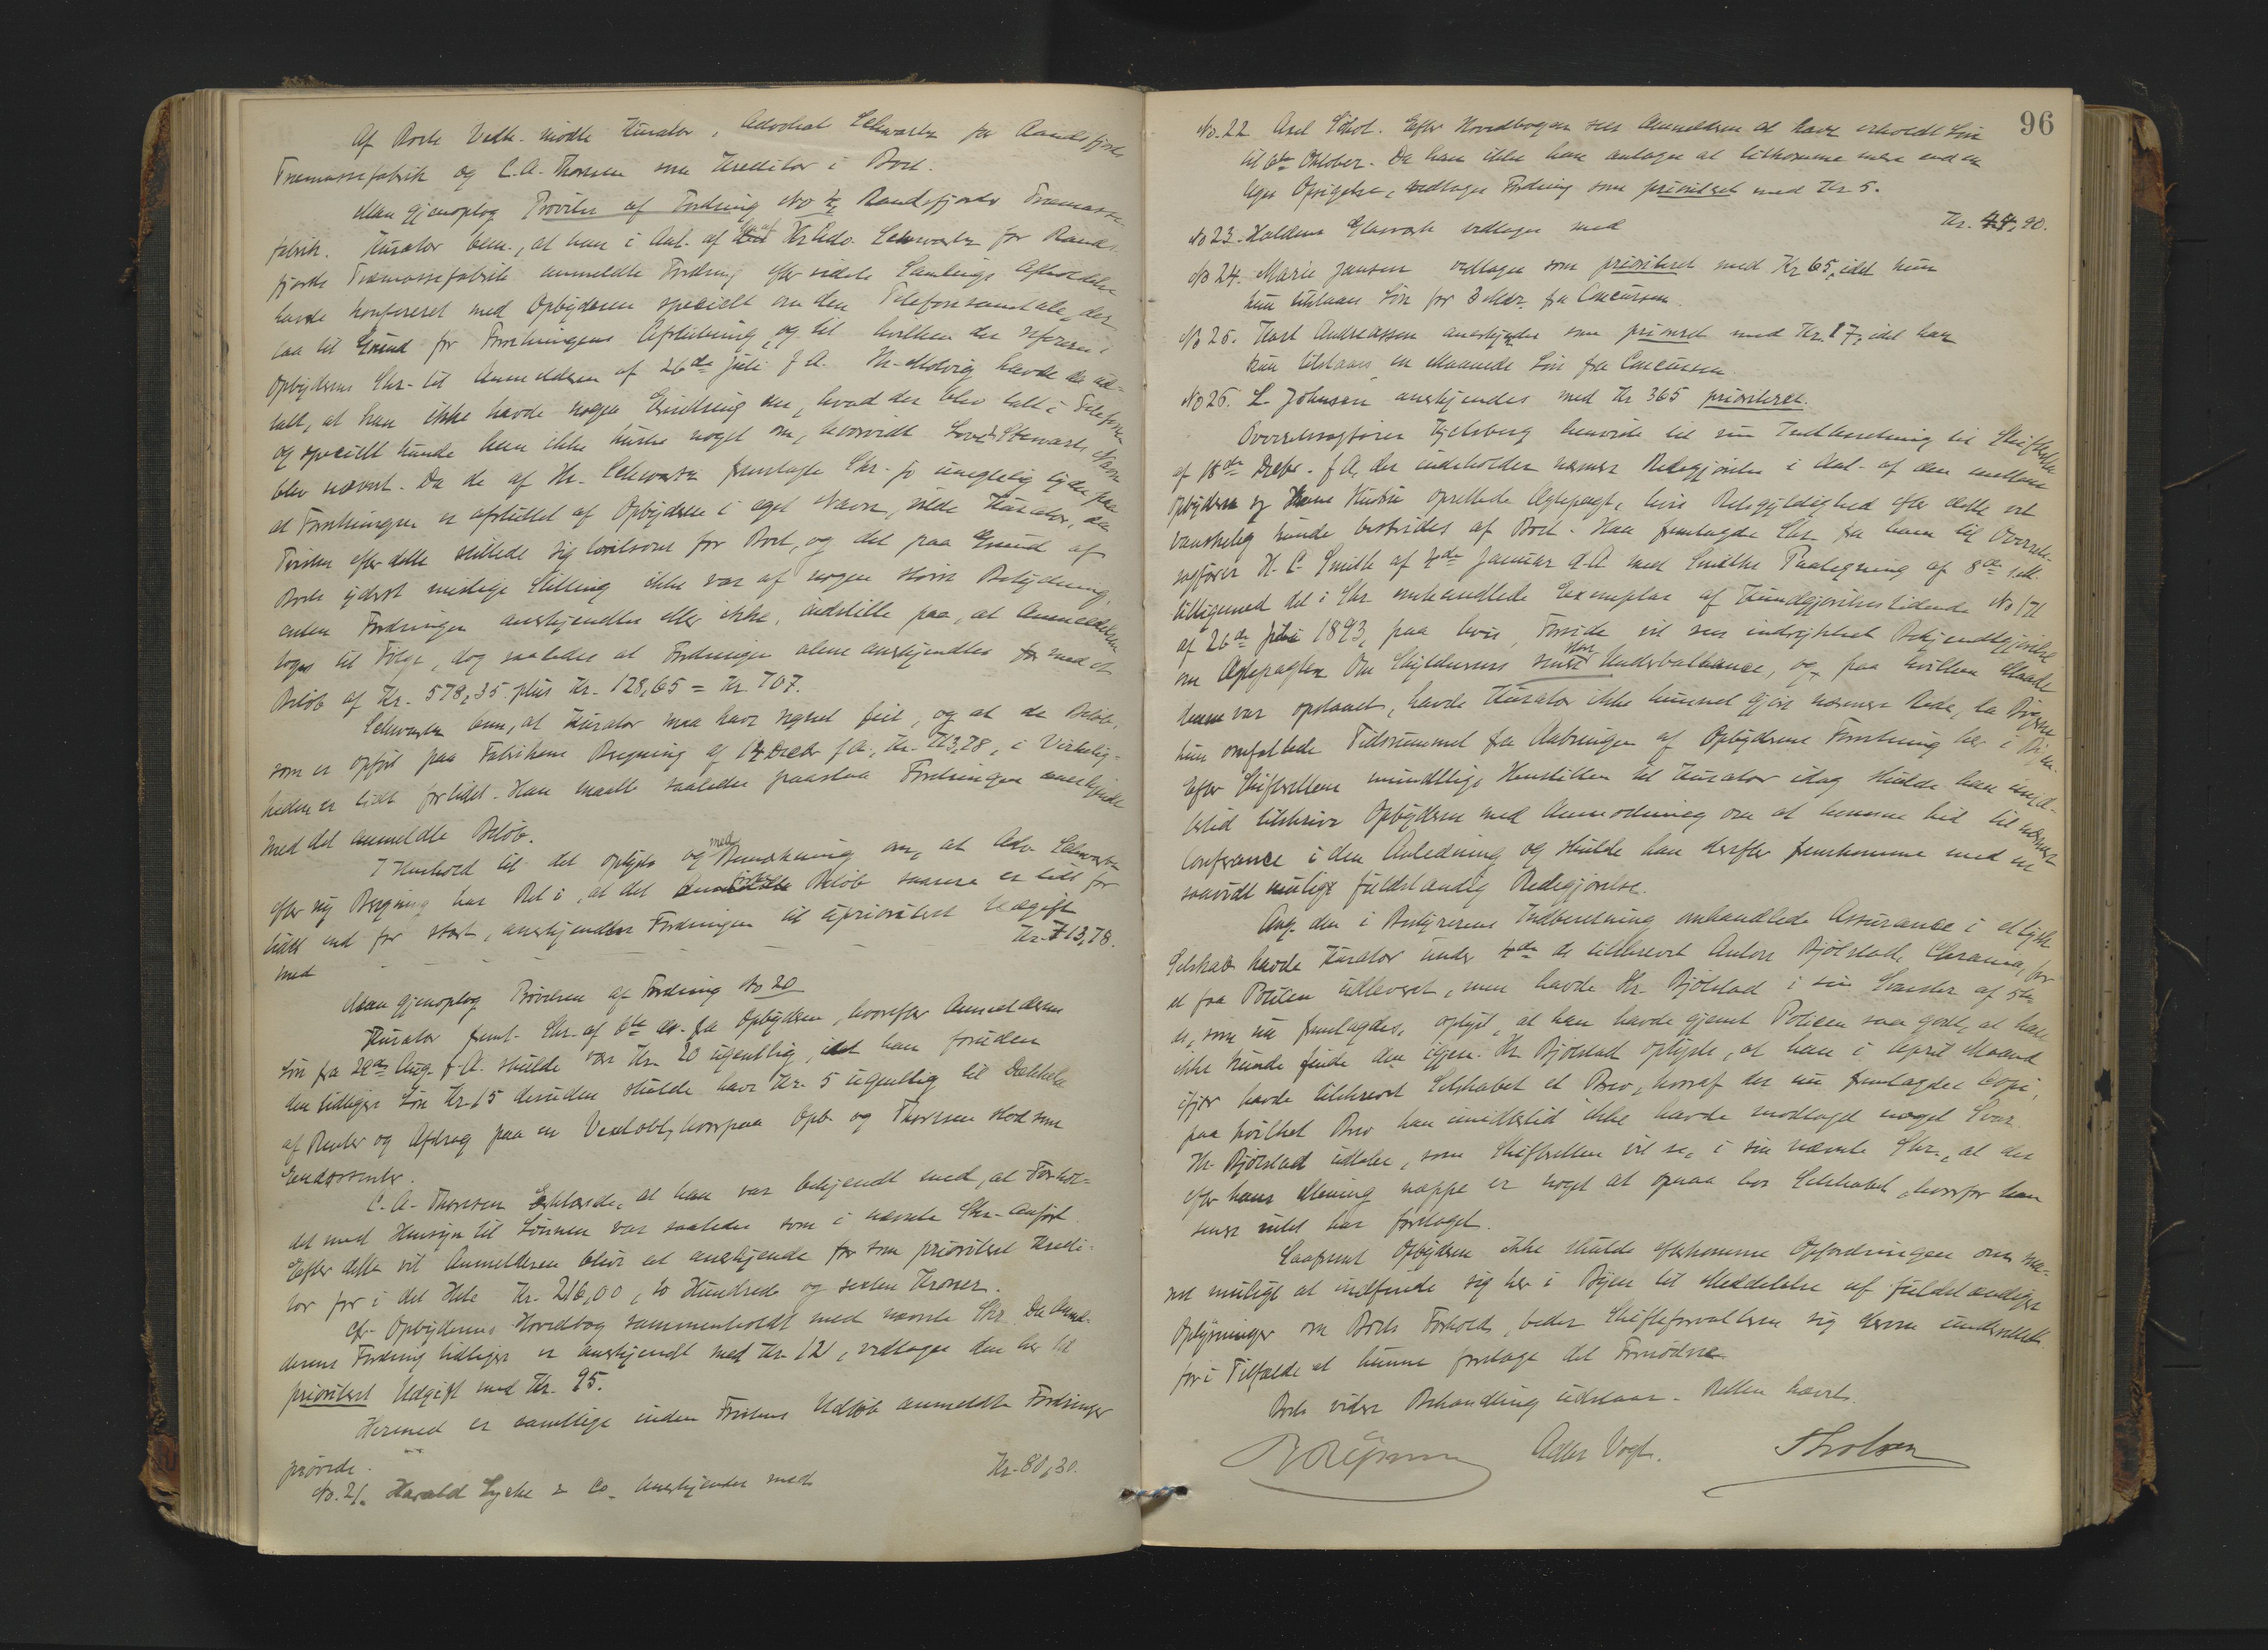 Af Boets Vedk. mödte Kurator, Advokat Schwartz for Randsfjords
Træmassefabrik og C.A. Thoresen som Kreditor i Boet.
Man gjenoptog Prövelse af Fordring No 4, Randsfjords Træmasse-
fabrik. Kurator bem., at han i Anl. af Hr Adv. Schwartz for Rands-
fjords Træmassefabrik anmeldte Fordring efter sidste Samlings Afholdelse
havde konfereret med Opbyderen specielt om den Telefonsamtale, der
laa til Grund for Forretningens Afslutning, og til hvilken der refereres i
Opbyderens Skr. til Anmelderen af 26de Juli f A. Hr. havde da ud-
talt, at han ikke havde nogen Erindring om, hvad der blev talt i Telefonen
og specielt kunde han ikke huske noget om, hvorvidt Stewarts Navn
blev nævnt. Da de af Hr. Schwartz fremlagte Skr. jo lyder paa
at Forretningen er afsluttet af Opbyderen i eget Navn, vilde Kurator, da
efter dette stillede sig tvilsomt for Boet, og det paa Grund af
Boets yderst mislige Stilling ikke var af nogen större Betydning,
enten Fordringen anerkjendtes eller ikke, indstille paa, at Anmeldelsen
toges til Fölge, dog saaledes at Fordringen alene anerkjendtes for med et
Belöb af Kr. 578,35 plus Kr. 128,65 = Kr. 707.
Schwartz bem., at Kurator maa have regnet feil, og at de Belöb,
som er opfört paa Fabrikens Regning af 14 Decbr f A., Kr. 713,78, i Virkelig-
heden er lidt for lidet. Han maatte saaledes paastaa Fordringen anerkjendt
med det anmeldte Belöb.
I Henhold til det oplyste og med Bemærkning om, at Adv. Schwartz
efter ny Beregning har Ret i, at det Belöb snarere er lidt for
lidet end for stort, anerkjendtes Fordringen til uprioriteret Udgift
med — — — Kr. 713,78.
Man gjenoptog Prövelsen af Fordring No 20
Kurator freml. Skr. af 6te ds. fra Opbyderen, hvorefter Anmelderens
Lön fra 22de Aug. f. A. skulde være Kr. 20 ugentlig, idet han foruden
den tidligere Lön Kr. 15 desuden skulde have Kr. 5 ugentlig til Dækkelse
af Renter og Afdrag paa en Vexelobl., hvorpaa Opb. og Thoresen stod som
Endossenter.
C.A. Thoresen erklærede, at han var bekjendt med, at Forhol-
det med Hensyn til Lönnen var saaledes som i nævnte Skr. anfört.
Efter dette vil Anmelderen blive at anerkjende for som prioriteret Kredi-
tor for i det Hele Kr. 216,00, to Hundrede og sexten Kroner.
cfr. Opbyderens Hovedbog sammenholdt med nævnte Skr. Da Anmel-
derens Fordring tidligere er anerkjendt med Kr. 121, vedtages den her til
prioriteret Udgift med Kr. 95.
Hermed er samtlige inden Fristens Udlöb anmeldte Fordringer
prövede.
No. 21. Harald Lyche & Co. Anerkjendes med Kr. 80,30.
96
No. 22 Axel Efter Hovedbogen sees Anmelderen at have erholdt Lön
til 6te Oktober. Da han ikke kan antages at tilkomme mere end en
Uges Opsigelse, vedtages Fordring som prioriteret med Kr 5.
No 23. Haldens Glasværk vedtages med Kr. 44,90.
No 24. Marie Jansen vedtages som prioriteret med Kr 65, idet hun
kun tilstaaes Lön for 3 Mdr. fra Concursen.
No 25. Karl Andreassen anerkjendes som prioriteret med Kr. 17, idet han
kun tilstaaes en Maaneds Lön fra Concursen
No 26. L. Johnsen anerkjendes med Kr 365 prioriteret.
Overretssagförer Kjelsberg henviste til sin Indberetning til Skifteretten
af 18de Decbr. f A, der indeholder nærmere Redegjörelse i Anl. af den mellem
Opbyderen og Hans Hustru oprettede Ægtepagt, hvis Retsgyldighed efter dette vel
vanskelig kunde bestrides af Boet. Han fremlagde Skr. fra ham til Overrets-
sagförer H. C. Smith af 4de Januar d.A. med Smiths Paategning af 8de s.M.
tilligemed det i Skr. omhandlede Exemplar af Kundgjörelsestidende No 171
af 26de Juli 1893, paa hvis Forside vil sees indrykket Bekjendtgjörelse
om Ægtepagten. Om Skyldnerens store Underballance, og paa hvilken Maade
denne var opstaaet, havde Kurator ikke kunnet gjöre nærmere Rede, da Bögerne
kun omfattede Tidsrummet fra Aabningen af Opbyderens Forretning her i Byen.
Efter Skifterettens mundtlige Henstillen til Kurator idag skulde han imid-
lertid tilskrive Opbyderen med Anmodning om at komme hid til nærmere
Conferance i den Anledning og skulde han derefter fremkomme med en
saavidt muligt fuldstændig Redegjörelse.
Ang. den i Bestyrerens Indberetning omhandlede Assurance i et tysk
Selskab havde Kurator under 4de ds tilskrevet Anton Bjölstad, Chrania, for
at faa Policen udleveret, men havde Hr. Bjölstad i sin Svarskr. af 5te
ds, som nu fremlagdes, oplyst, at han havde gjemt Policen saa godt, at han
ikke kunde finde den igjen. Hr. Bjölstad oplyste, at han i April Maaned
ifjor havde tilskrevet Selskabet et Brev, hvoraf der nu fremlagdes Copi,
paa hvilket Brev han imidlertid ikke havde modtaget noget Svar.
Hr. Bjölstad udtaler, som Skifteretten vil se, i sin nævnte Skr., at der
efter hans Mening neppe er noget at opnaa hos Selskabet, hvorfor han
senere intet har foretaget.
Saafremt Opbyderen ikke skulde efterkomme Opfordringen om sna-
rest muligt at indfinde sig her i Byen til Meddelelse af fuldstændigere
Oplysninger om Boets Forhold, beder Skifteforvalteren sig derom underrettet
for i Tilfælde at kunne foretage det Fornödne
Boets videre Behandling udstaar. Retten hævet.
Adler Vogt.